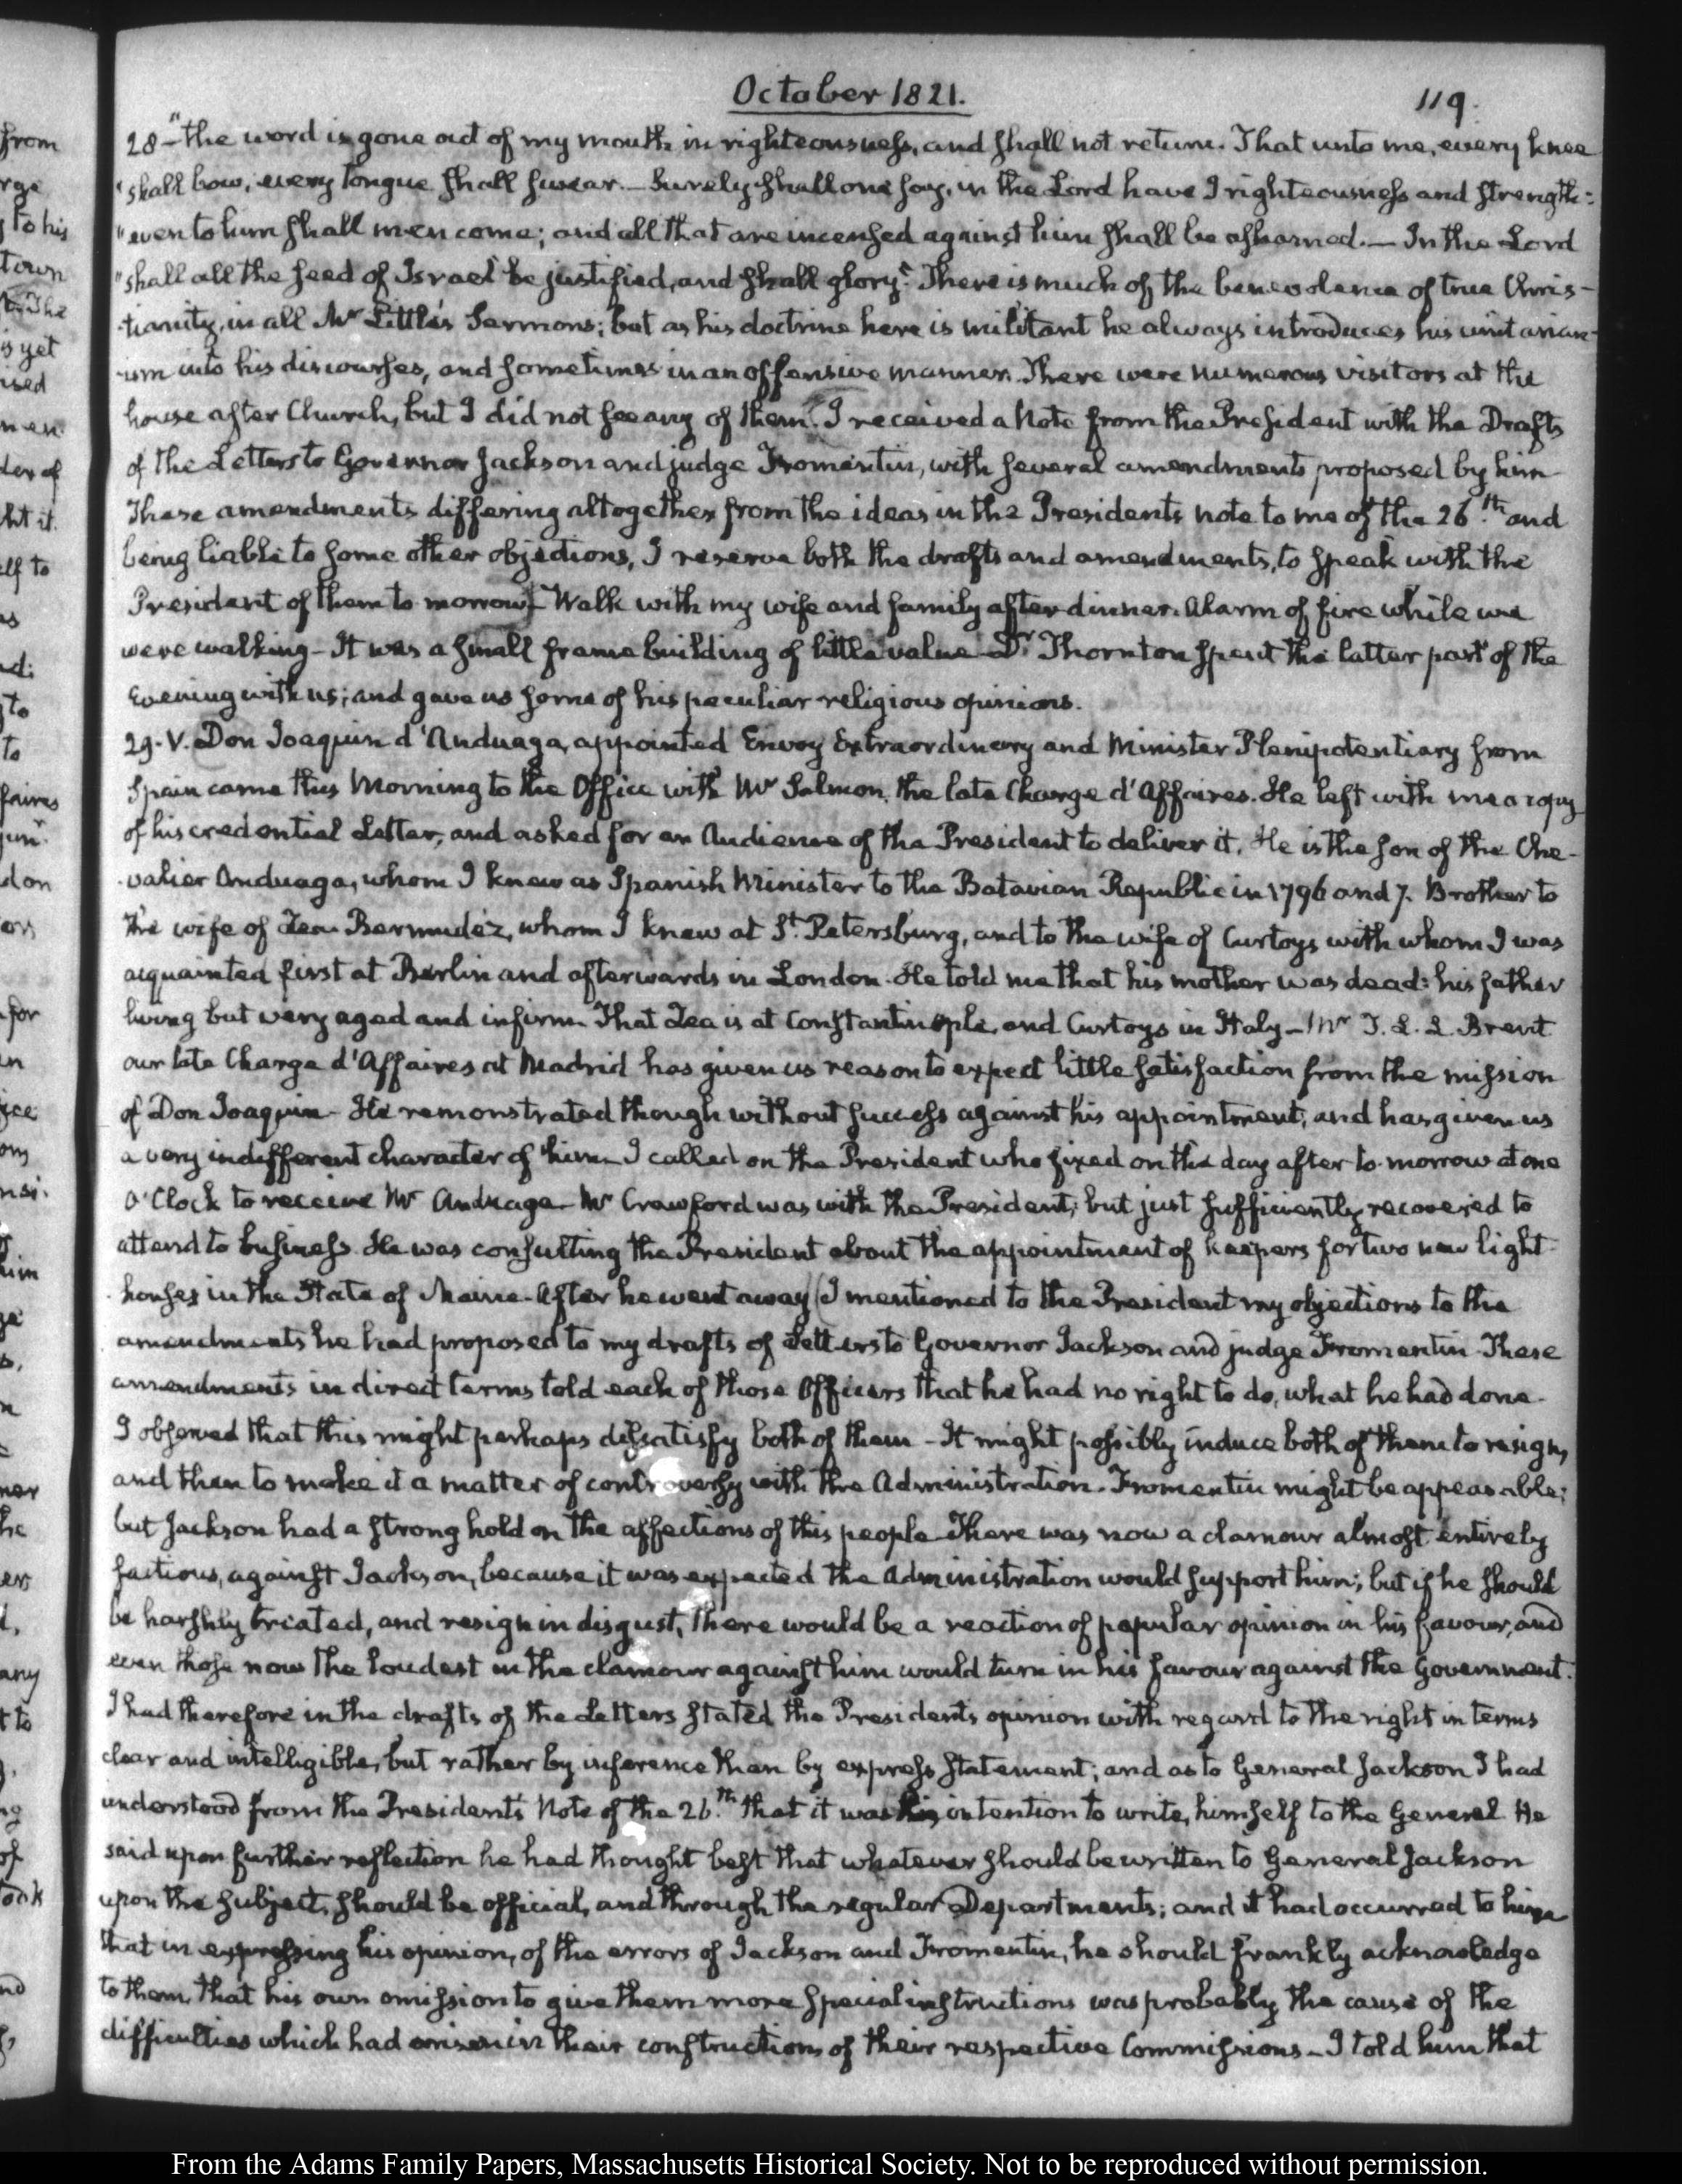 October 1821.
119.
28 - "the word is gone out of my mouth in righteousness, and shall not return. That unto me, every knee
"shall bow, every tongue shall swear. - Surely shall one say, in the Lord have I righteousness and strength:
"even to him shall men come; and all that are incensed against him shall be ashamed. - In the Lord
"shall all the seed of Israel be justified, and shall glory." There is much of the benevolence of true Chris-
-tianity, in all Mr Little's Sermons; but as his doctrine here is militant he always introduces his unitarian-
-ism into his discourses, and sometimes in an offensive manner. There were numerous visitors at the
house after Church, but I did not see any of them. I received a Note from the President with the Drafts
of the Letters to Governor Jackson and judge Fromentin, with several amendments proposed by him
These amendments differing altogether from the ideas in the Presidents note to me of the 26.th and
being liable to some other objections, I reserve both the drafts and amendments, to speak with the
President of them to morrow. Walk with my wife and family after dinner. Alarm of fire while we
were walking - It was a small frame building of little value - Dr Thornton spent the latter part of the
Evening with us; and gave us some of his peculiar religious opinions.
29. V. Don Joaquin d'Anduaga, appointed Envoy Extraordinary and Minister Plenipotentiary from
Spain came this Morning to the Office with Mr Salmon, the late Charge d'Affaires. He left with me a copy
of his credential Letter, and asked for an Audience of the President to deliver it. He is the son of the Che-
-valier Anduaga, whom I knew as Spanish Minister to the Batavian Republic in 1796 and 7. Brother to
the wife of Zea Bermudez, whom I knew at St. Petersburg, and to the wife of Curtoys, with whom I was
acquainted first at Berlin and afterwards in London. He told me that his mother was dead: his father
living but very aged and infirm. That Zea is at Constantinople, and Curtoys in Italy - Mr T. L. L. Brent
our late Charge d'Affaires at Madrid has given us reason to expect little satisfaction from the mission
of Don Joaquin - He remonstrated though without success against his appointment, and has given us
a very indifferent character of him - I called on the President who fixed on the day after to-morrow at one
O'Clock to receive Mr Anduaga - Mr Crawford was with the President; but just sufficiently recovered to
attend to business. He was consulting the President about the appointment of keepers for two new light-
-houses in the State of Maine. After he went away (I mentioned to the President my objections to the
amendments he had proposed to my drafts of Letters to Governor Jackson and judge Fromentin. These
amendments in direct terms told each of those Officers that he had no right to do, what he had done.
I observed that this might perhaps dissatisfy both of them - It might possibly induce both of them to resign,
and then to make it a matter of controversy with the Administration. Fromentin might be appeasable;
but Jackson had a strong hold on the affections of this people. There was now a clamour almost entirely
factious, against Jackson, because it was expected the Administration would support him; but if he should
be harshly treated, and resign in disgust, there would be a reaction of popular opinion in his favour, and
even those now the loudest in the clamour against him would turn in his favour against the Government.
I had therefore in the drafts of the Letters stated the Presidents opinion with regard to the right in terms
clear and intelligible, but rather by inference than by express statement; and as to General Jackson I had
understood from the President's Note of the 26.th that it was his intention to write, himself to the General. He
said upon further reflection he had thought best that whatever should be written to General Jackson
upon the subject, should be official, and through the regular Departments; and it had occurred to him
that in expressing his opinion, of the errors of Jackson and Fromentin, he should frankly acknowledge
to them, that his own omission to give them more special instructions was probably the cause of the
difficulties which had arisen in their constructions of their respective Commissions - I told him that
From the Adams Family Papers, Massachusetts Historical Society. Not to be reproduced without permission.